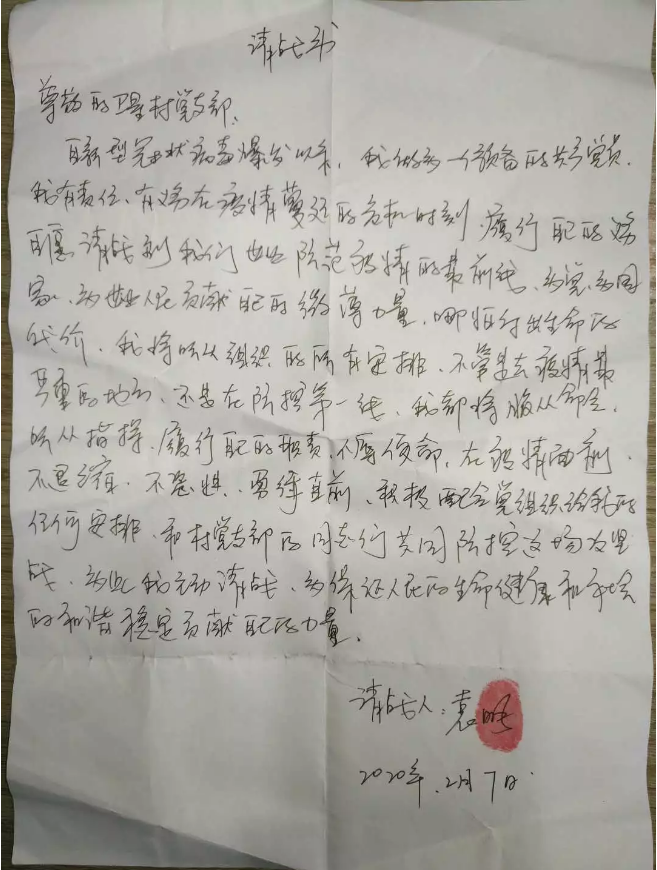 请战书
尊敬的卫星村党支部：
自新型冠状病毒爆发以来，我做为一个预备的共产党员，
我有责任、有义务在疫情蔓延的危机时刻，履行自己的义务
自愿请战到我们 防范疫情的最前线，为党、为国
家、为 人民贡献自己的微薄力量，哪怕付出生命的
代价，我将听从组织的所有安排，不管是去疫情最
严重的地方，还是在防控第一线，我都将服从命令，
听从指挥，履行自己的职责，不辱使命，在疫情面前，
不退缩，不畏惧，勇往直前，积极配合党组织给我的
任何安排，和村党支部的同志们共同防控这场攻坚
战，为此我主动请战，为保证人民的生命健康和社会
的和谐稳定贡献自己的力量。
请战人：袁
2020年.2月7日.